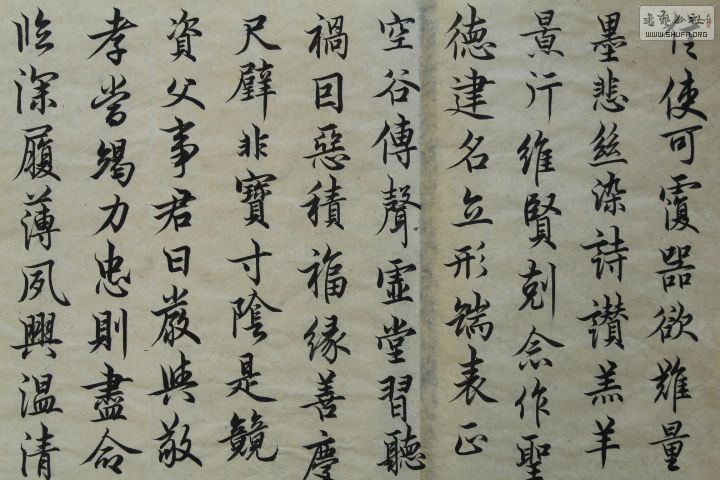 書藝公社
WWW.SHUFA.ORG
信使可覆器欲難量
墨悲絲染詩讚羔羊
景行維賢剋念作聖
德建名立形端表正
空谷傳聲虛堂習聽
禍因惡積福緣善慶
尺璧非寶寸陰是競
資父事君曰嚴與敬
孝當竭力忠則盡命
臨深履薄夙興溫清